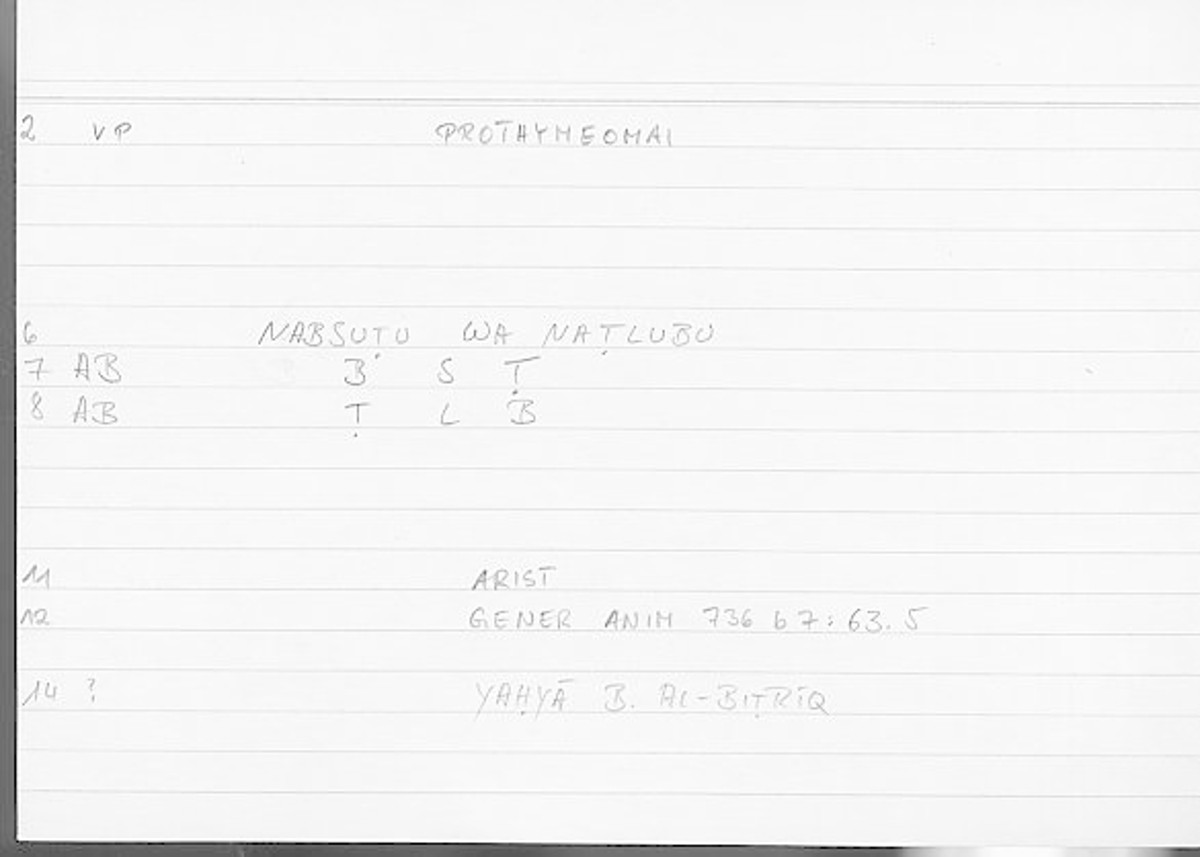 2 VP PROTHYMEOMAI
6 NABSUṬU WA NAṬLUBU
7 AB B S Ṭ
8 AB Ṭ L B
11 ARIST
12 GENER ANIM 736 b 7: 63.5
14 ? YAḤYĀ B. AL-BIṬRĪQ